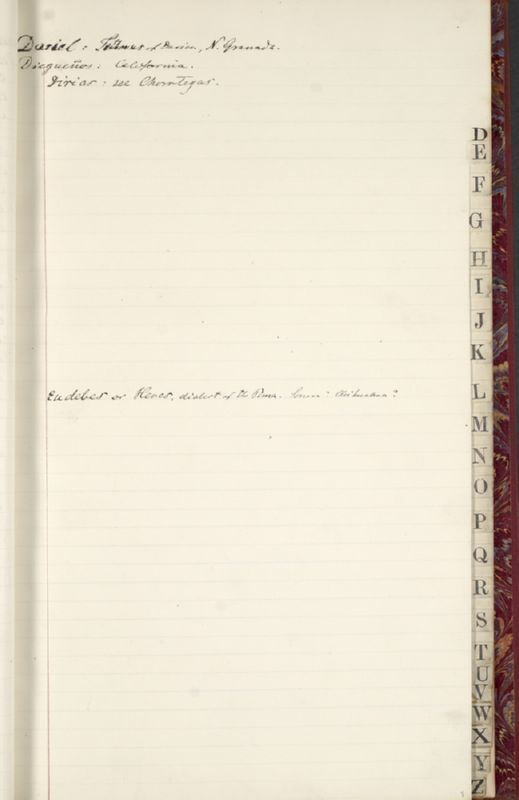 Dariel : Isthmus of Darien, N. Granada.
Diegueños : California.
Dirias : see Chorotegas.
Eudebes or Heves, dialect of the Pima. Sonora? Chihuahua?
D
E
F
G
H
I
J
K
L
M
N
O
P
Q
R
S
T
U
V
W
X
Y
Z